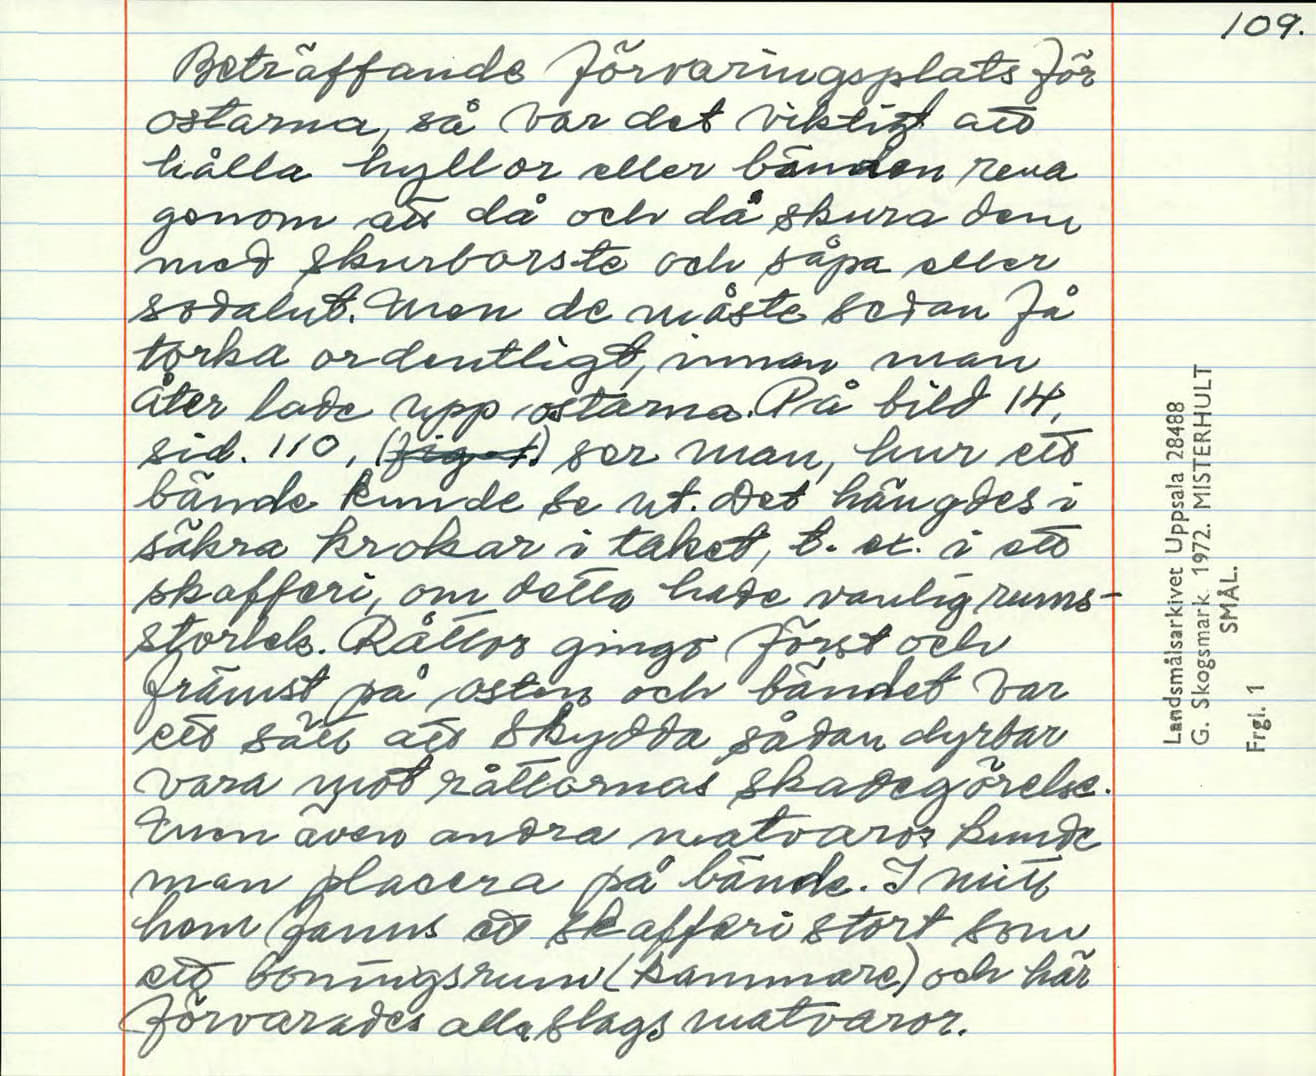 109.
Beträffande förvaringsplats för
ostarna, så var det viktigt att
hålla hyllor eller bänden rena
genom att då och då skura dem
med skurborste och såpa eller
sodalut. Men de måste sedan få
torka ordentligt, innan man
åter lade upp ostarna. På bild 14,
sid. 110, (fig 1.) ser man, hur ett
bände kunde se ut. Det hängdes i
säkra krokar i taket, t. ex. i ett
skafferi, om detta hade vanlig rums-
storlek. Råttor gingo först och
främst på osten och bändet var
ett sätt att skydda sådan dyrbar
vara mot råttornas skadegörelse.
Men även andra matvaror kunde
man placera på bände. I mitt
hem fanns ett skafferi stort som
ett boningsrum (kammare) och här
förvarades alla slags matvaror.
Landsmålsarkivet Uppsala 28488
G. Skogsmark. 1972. MISTERHULT
SMÅL.
Frgl. 1